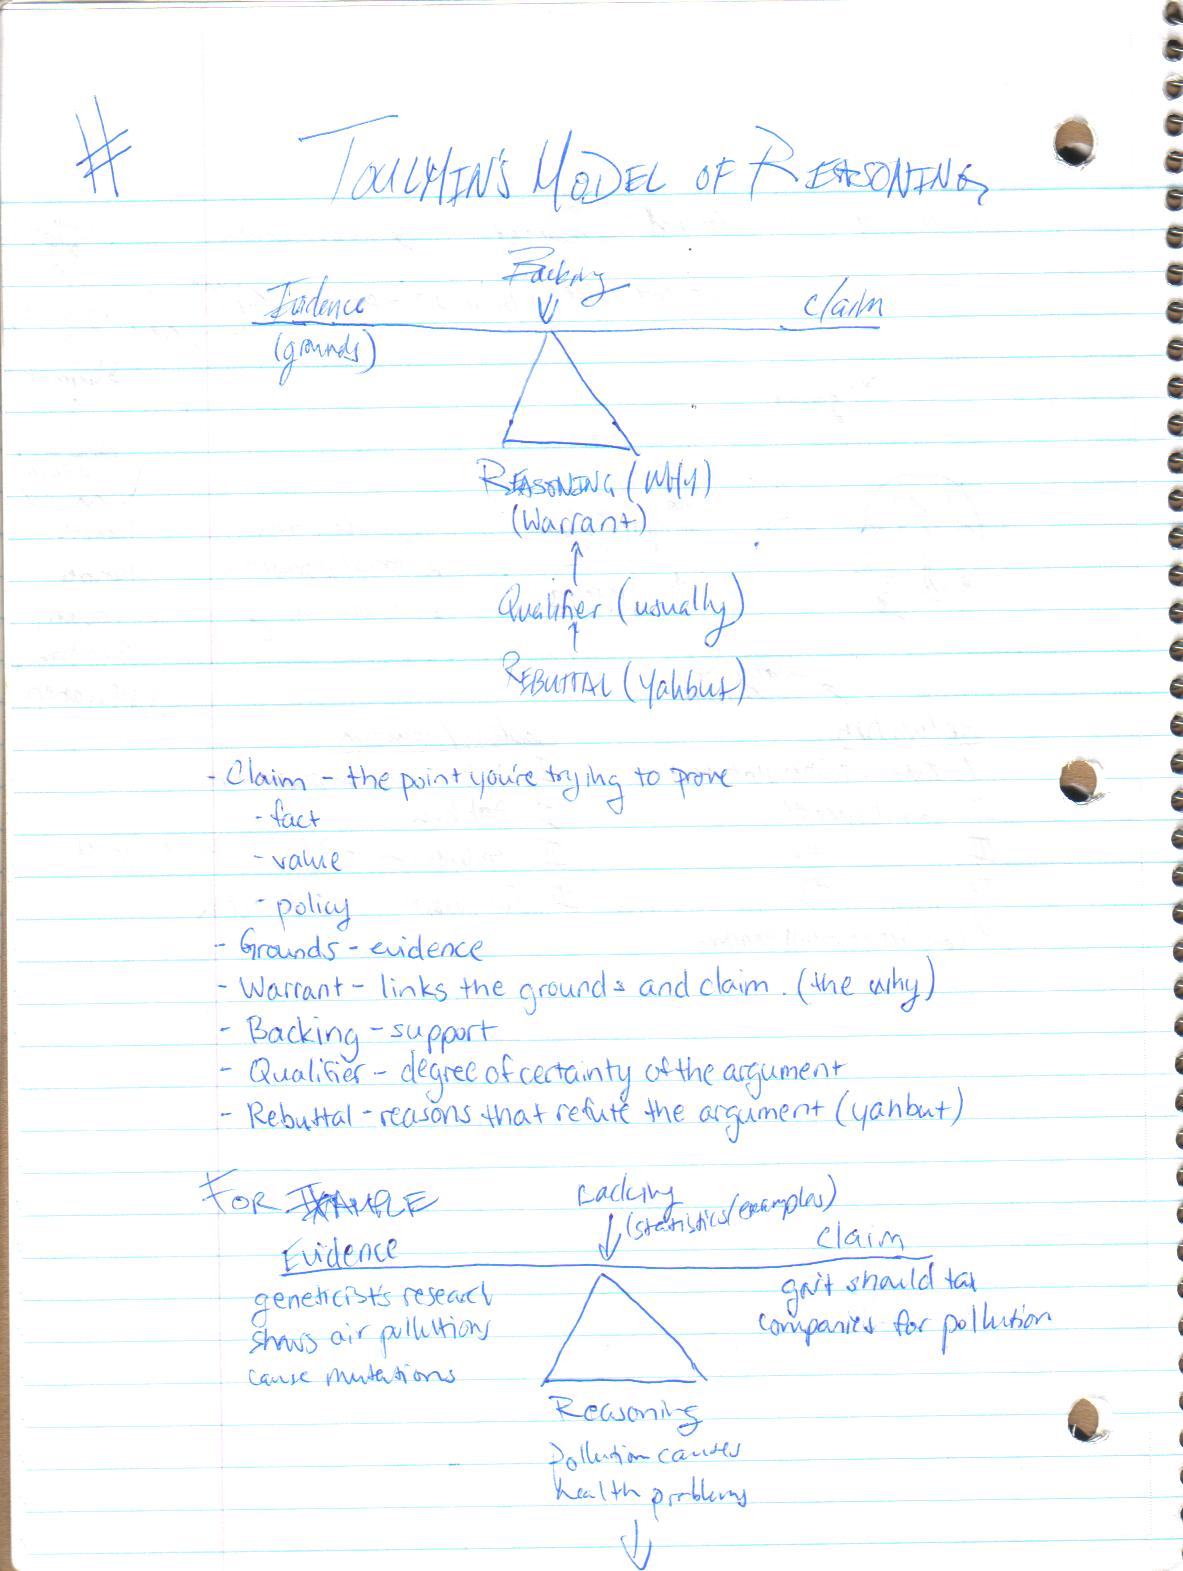 #
TOULMIN'S MODEL OF REASONING
Backing
Evidence claim
(grounds)
REASONING (WHY)
(Warrant)
Qualifier (usually)
REBUTTAL (yahbut)
- Claim - the point you're trying to prove
- fact
- value
- policy
- Grounds - evidence
- Warrant - links the grounds and claim. (the why)
- Backing - support
- Qualifier - degree of certainty of the argument
- Rebuttal - reasons that refute the argument (yahbut)
FOR EXAMPLE
Backing
(statistics/examples)
Evidence claim
geneticist's research
shows air pollutions
cause mutations
gov't should tax
companies for pollution
Reasoning
Pollution causes
health problems